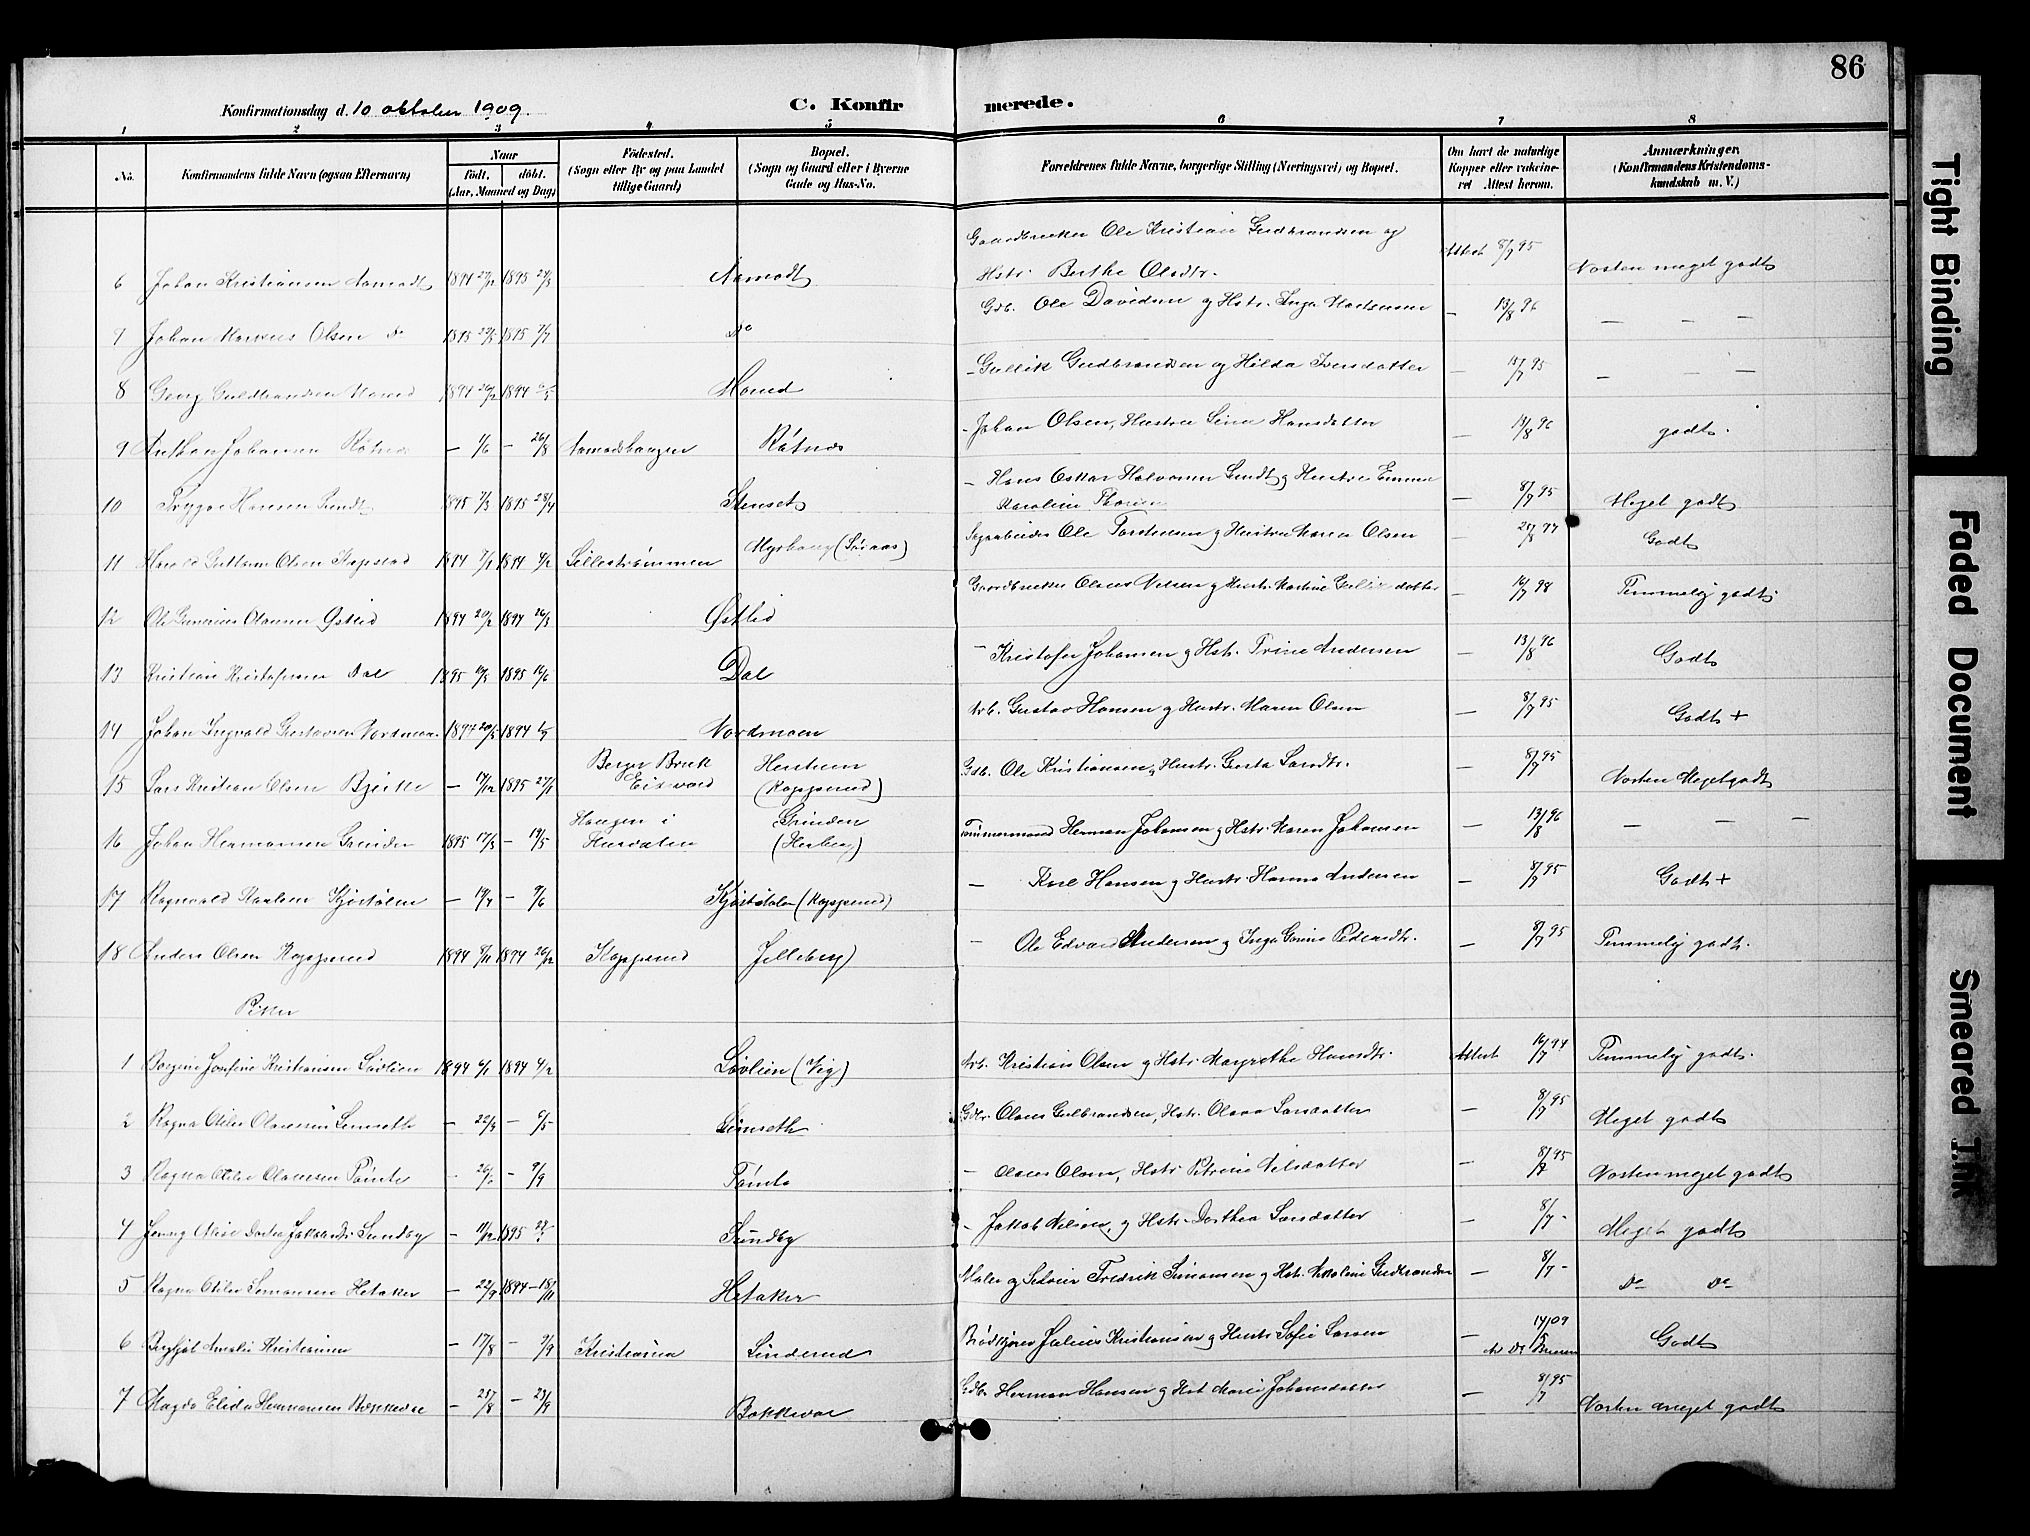 86
Konfirmationsdag d. 10 oktober 1909.
C. Konfirmerede.
1 2 3 4 5 6 7 8
No.
Konfirmandens fulde Navn (ogsaa Efternavn)
Naar
født. døbt.
(Aar, Maaned og Dag)
Fødested.
(Sogn eller By og paa Landet
tillige Gaard)
Bopæl.
(Sogn og Gaard eller i Byerne
Gade og Hus-No.
Forældrenes fulde Navne, borgerlige Stilling (Næringsvei) og Bopæl.
Om havt de naturlige
Kopper eller vakcine-
ret Attest herom.
Anmærkninger.
(Konfirmandens Kristendoms-
kundskab m. V.)
Gaardbruker Ole Kristian Gudbrandsen og
6 Johan Kristiansen Aamodt 1894 27/12 1895 24/3 Aamodt Hstr. Berthe Olsdtr. Attest 8/7 95 Næsten meget godt
7 Johan Markus Olsen do 1895 1895 7/7 do Gdb. Ole Davidsen og Hstr. Inga Martinsen — 13/8 96 — — —
8 Georg Guldbrandsen 1894 1894 — Gullik Gudbrandsen og Hilda Iversdatter — 95 — — —
9 Anthon Johansen Røtnes — 1/6 — 26/8 Aamodshaugen Røtnes — Johan Olsen, Hustru Sina Hansdatter — 13/8 96 godt.
10 Trygve Hansen Sundt 1895 7/3 1895 28/4 Stenset — Hans Oskar Halvorsen Sundt og Hustru Emma
Karoline — 8/7 95 Meget godt
11 Harald Guttorm Olsen 1894 1894 4/2 Lillestrømmen Myrhaug Sagarbeider Ole Torstensen og Hustru Maren Olsen — Godt
12 Ole Gunerius Olausen Østlid 1894 20/2 1894 26/3 Østlid Gaardbruker Olaus Nilsen og Hustr. Martine — 16/7 98 Temmelig godt
13 Kristian Kristofersen Dal 1895 1895 16/6 Dal — Kristofer Johansen og Hstr. Trine Andersen — 13/8 96 Godt
14 Johan Ingvald Gustavsen Nordmoen 1894 1894 Nordmoen Arb. Gustav Hansen og Hustr. Maren Olsen — 8/7 95 Godt +
15 Lars Kristian Olsen Bjerke — 1895 27/1 Berger Bruk
Eidsvold (Kopperud) Gdb. Ole Kristiansen, Hustr. Larsdtr. — 8/7 95 Næsten Meget godt
16 Johan Hermansen Grinder 1895 17/3 — 19/5 Haugen i
Hurdalen Grinden Tømmermand Herman Johansen og Hstr. Maren Johansen — 13/8 96 — — —
17 Ragnvald Karlsen Kjøstølen — — 9/6 Kjøstølen (Kopperud) — Karl Hansen og Hustr. Hanna Andersen — 8/7 95 Godt +
18 Anders Olsen Kopperud 1894 8/11 1894 26/12 Kopperud Jilleberg) — Ole Edvard Andersen og Inga Gurine Pedersdtr. — 8/7 95 Temmelig godt.
Piker
1 Borgine Josefine Kristiansen Løvlien 1894 6/1 1894 4/2 Løvlien (Vig) Arb. Kristian Olsen og Hstr. Margrethe Hansdtr. Attest 16/7 94 Temmelig godt.
2 Ragna Otilie Olausen Semseth — 22/3 — 6/5 Semseth Gdbr. Olaus Gulbrandsen, Hstr. Olava Larsdatter — 8/7 95 Meget godt
3 Ragna Otilie Olausen Tømte — — 9/9 Tømte — Olaus Olsen, Hstr. Petrine Nilsdatter — 8/7 95 Næsten meget godt
4 Jenny Alise Dortea Jakobsdtr. Sundby — 11/12 1895 Sundby — Jakob Nilsen, og Hstr. Dorthea Larsdatter — 8/7 - Meget godt
5 Ragna Otilie Simonsen Hetaker — 22/9 1894 — 18/11 Hetaker Maler og Fredrik Simonsen og Hst. Nikoline Gudbrandsen — 8/7 - Do Do
6 Amalie Kristiansen — 17/8 — 9/9 Kristiania Linderud Julius Kristiansen og Hustr. Sofie Larsen — 14/5 09 Godt
7 Magda Elida Hermansen Bakkevar — 25/8 — 23/9 Bakkevar Gdbr Herman Hansen og Hst Marie Johansdatter — 8/7 95 Næsten meget godt
Tight Binding
Faded Document
Smeared Ink